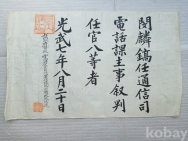 閔麟鎬任通信司
電話課主事叙判
任官八等者
光武七年八月二十日
kobay